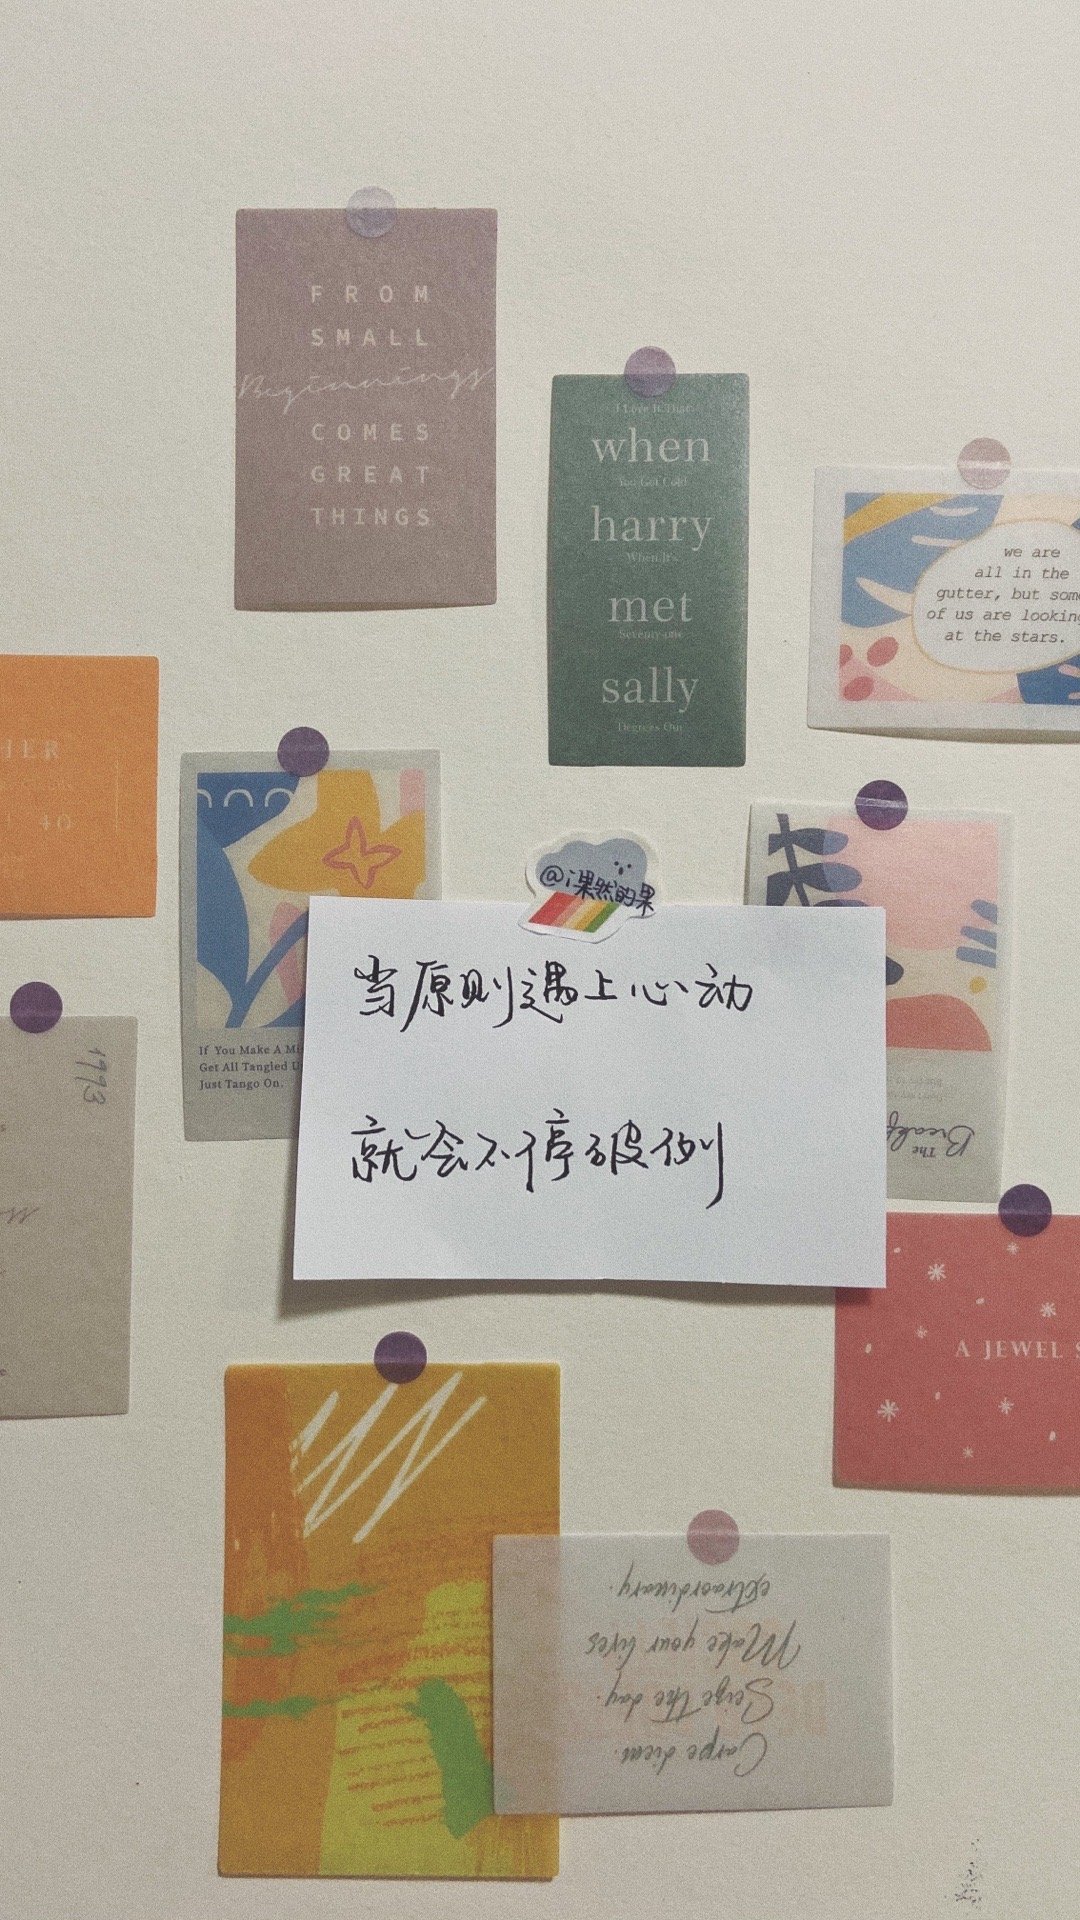 FROM
SMALL
Beginnings
COMES
GREAT
THINGS
I Love It That
when
You Get Cold
harry
When It's
met
Seventy-one
sally
Degrees Out
we are
all in the
gutter, but some
of us are looking
at the stars.
HER
40
If You Make A Mi
Get All Tangled U
Just Tango On.
@i果然的果
当原则遇上心动
就会不停破例
1993
The
Break
A JEWEL S
Carpe diem.
Seize the day.
Make your lives
extraordinary.